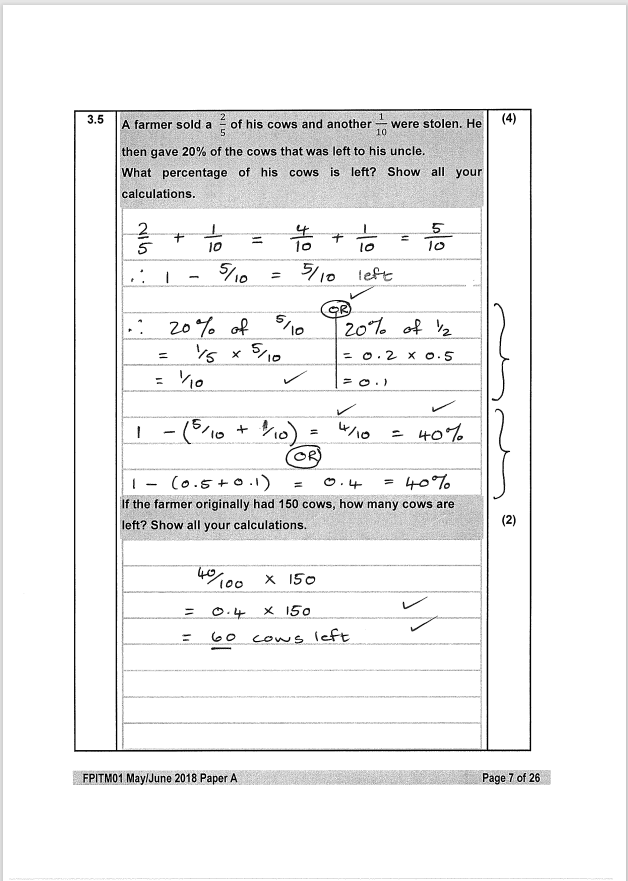 3.5 A farmer sold a 2/5 of his cows and another 1/10 were stolen. He (4)
then gave 20% of the cows that was left to his uncle.
What percentage of his cows is left? Show all your
calculations.
2/5 + 1/10 = 4/10 + 1/10 = 5/10
∴ 1 - 5/10 = 5/10 left
OR
∴ 20% of 5/10 20% of 1/2
= 1/5 x 5/10 = 0.2 x 0.5
= 1/10 = 0.1
1 - (5/10 + 1/10) = 4/10 = 40%
OR
1 - (0.5 + 0.1) = 0.4 = 40%
If the farmer originally had 150 cows, how many cows are
left? Show all your calculations. (2)
40/100 x 150
= 0.4 x 150
= 60 cows left
FPITM01 May/June 2018 Paper A Page 7 of 26